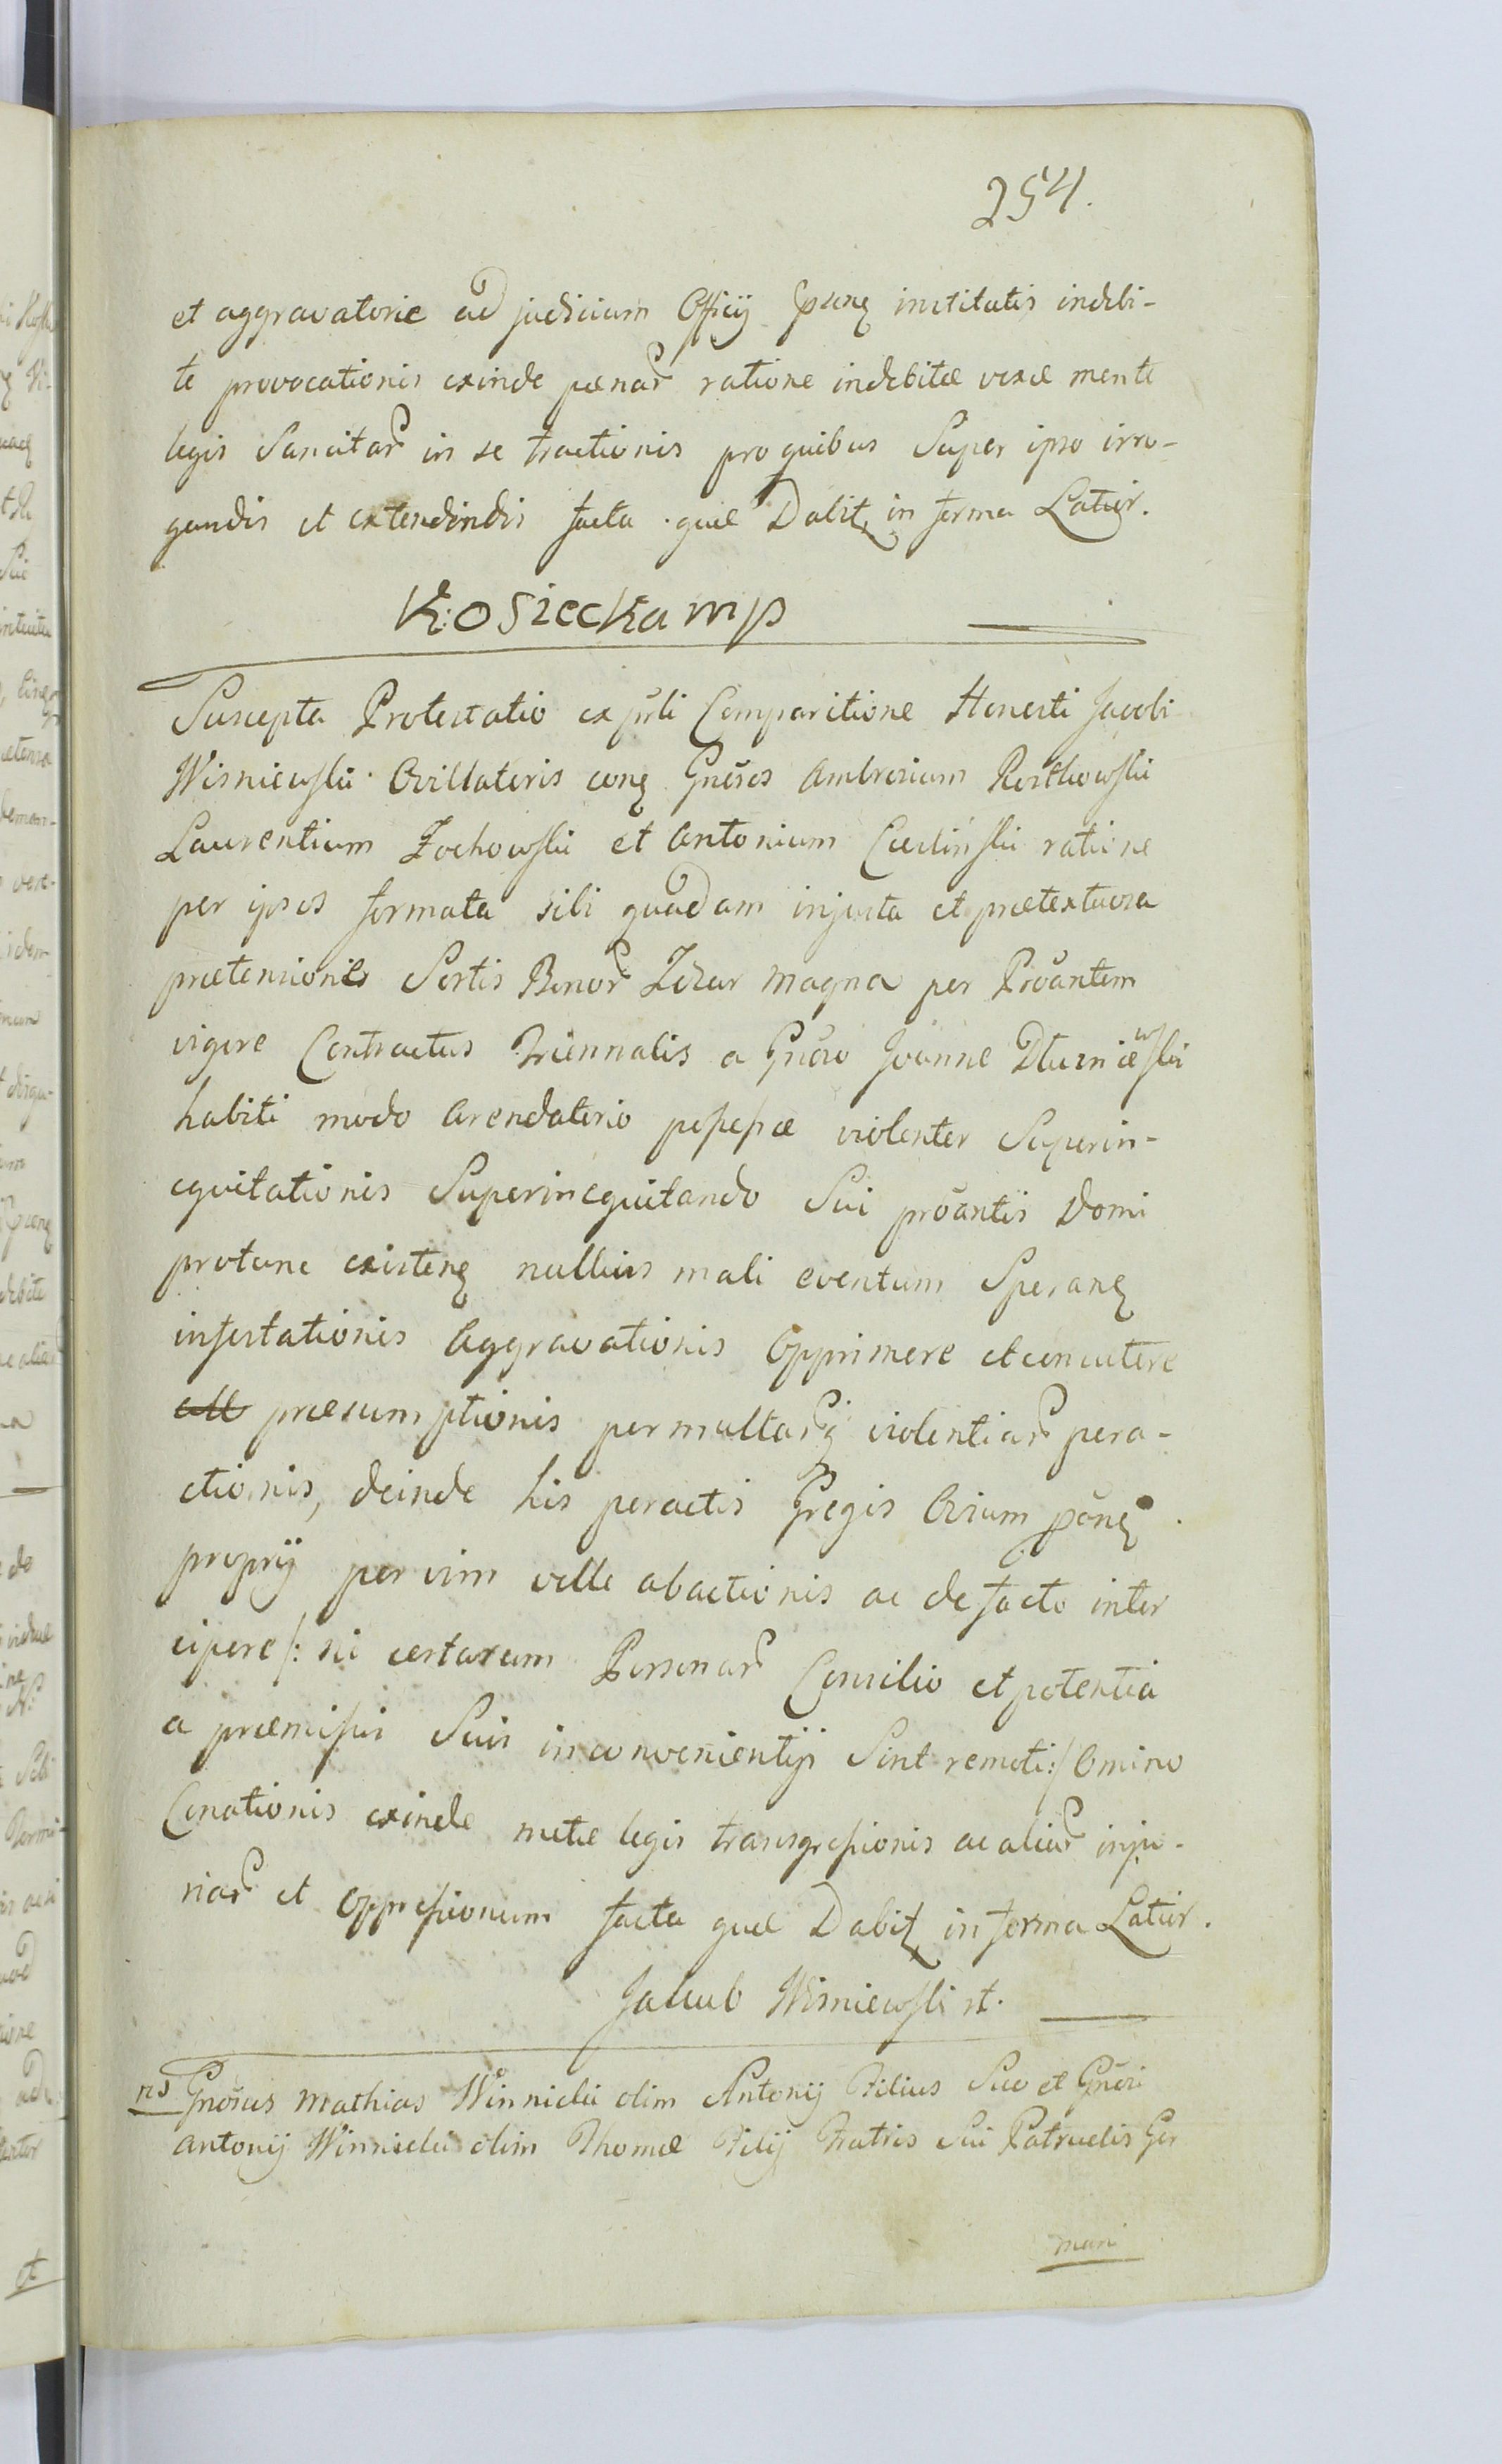 254.
et aggravatorie ad judicium Officij institutis indebi-
te provocationis exinde pænar ratione indebitæ vexæ mente
legis Sancitar in se tractionis pro quibus Super ipso irro-
gandis et extendendis facta quæ Dabit in forma Latior.
Kosieckamp
Suscepta Protestatio ex Comparitione Honesti Jacobi
Wisniewski Ovillatoris Ambrosium Rostkowski
Laurentium Zochowski et Antonium ratione
per ipsos formata sibi quadam injusta et prætextuosa
prætensionis Sortis Bonor magna per
vigore Contractus Triennalis a Joanne
habiti modo Arendatorio possessæ violenter Superin-
equitationis Superinequitando Sui Domi
protunc nullius mali eventum
infestationis Aggravationis Opprimere et concutere
præsumptionis permultarq violentiar pera-
ctionis, deinde his peractis Gregis Ovium
proprij per vim velle abactionis ac de facto inter
cipere /: ni certarum Personar Consilio et potentia
a præmissis Suis inconvenientijs Sint remoti :/ Omino
Conationis exinde metæ legis transgressionis ac aliar inju-
riar et Oppressionum facta quæ Dabit in forma Latior.
Jakub Wisniewski st.
ns Mathias Winnicki olim Antonij Filius Suo et
Antonij Winnicki olim Thomæ Filij Fratris Sui Patruelis Ger
mani